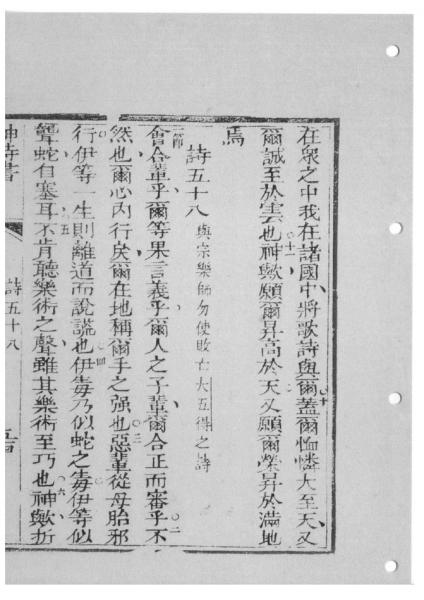 在眾之中我在諸國中將歌詩與爾蓋爾恤憐大至天又
爾誠至於雲也神歟願爾昇高於天又願爾榮昇於滿地
焉
詩五十八 與宗樂師勿使敗亡大五得之詩
會合輩乎爾等果言義乎爾人之子輩爾合正而審乎不
然也爾心內行戾爾在地稱爾手之强也惡輩從母胎邪
行伊等一生則離道而說謊也伊毒乃似蛇之毒伊等似
聾蛇自塞耳不肯聽樂術之聲雖其樂術至巧也神歟折
神詩書 詩五十八